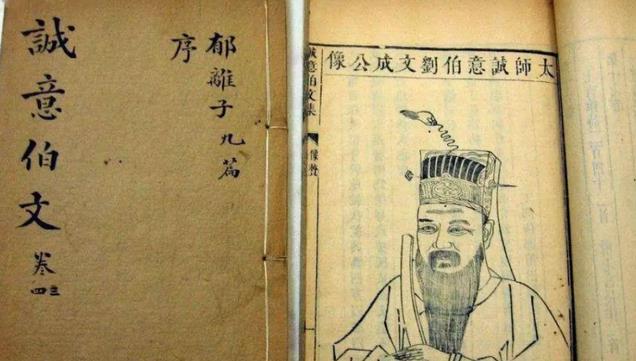 郁離子九篇
序
誠意伯文
卷三四
太師誠意伯劉文成公像
誠意伯文集
像贊